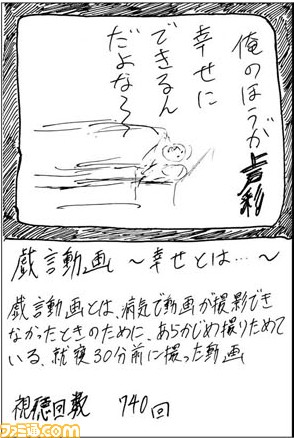 俺のほうが上彩
幸せに
できるん
だよなぁ
戯言動画 〜幸せとは…〜
戯言動画とは、病気で動画が撮影でき
なかったときのために、あらかじめ撮りためて
いる、就寝30分前に撮った動画
視聴回数 740回
ファミ通.com